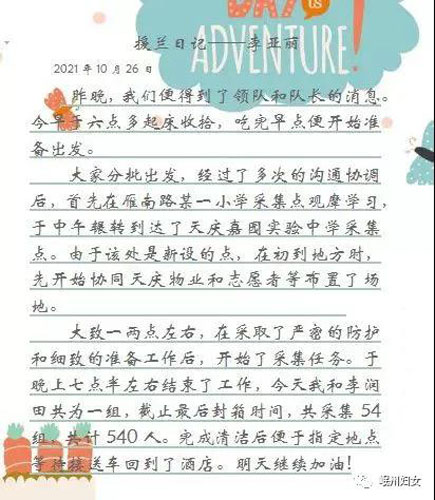 DAY
us
ADVENTURE!
援兰日记——李亚丽
2021年10月26日
昨晚,我们便得到了领队和队长的消息。
今早于六点多起床收拾,吃完早点便开始准
备出发。
大家分批出发,经过了多次的沟通协调
后,首先在雁南路某一小学采集点观摩学习,
于中午辗转到达了天庆嘉园实验中学采集
点。由于该处是新设的点,在初到地方时,
先开始协同天庆物业和志愿者等布置了场
地。
大致一两点左右,在采取了严密的防护
和细致的准备工作后,开始了采集任务。于
晚上七点半左右结束了工作,今天我和李润
田共为一组,截止最后封箱时间,共采集54
组,共计540人。完成清洁后便于指定地点
等待接送车回到了酒店。明天继续加油!
岷州妇女